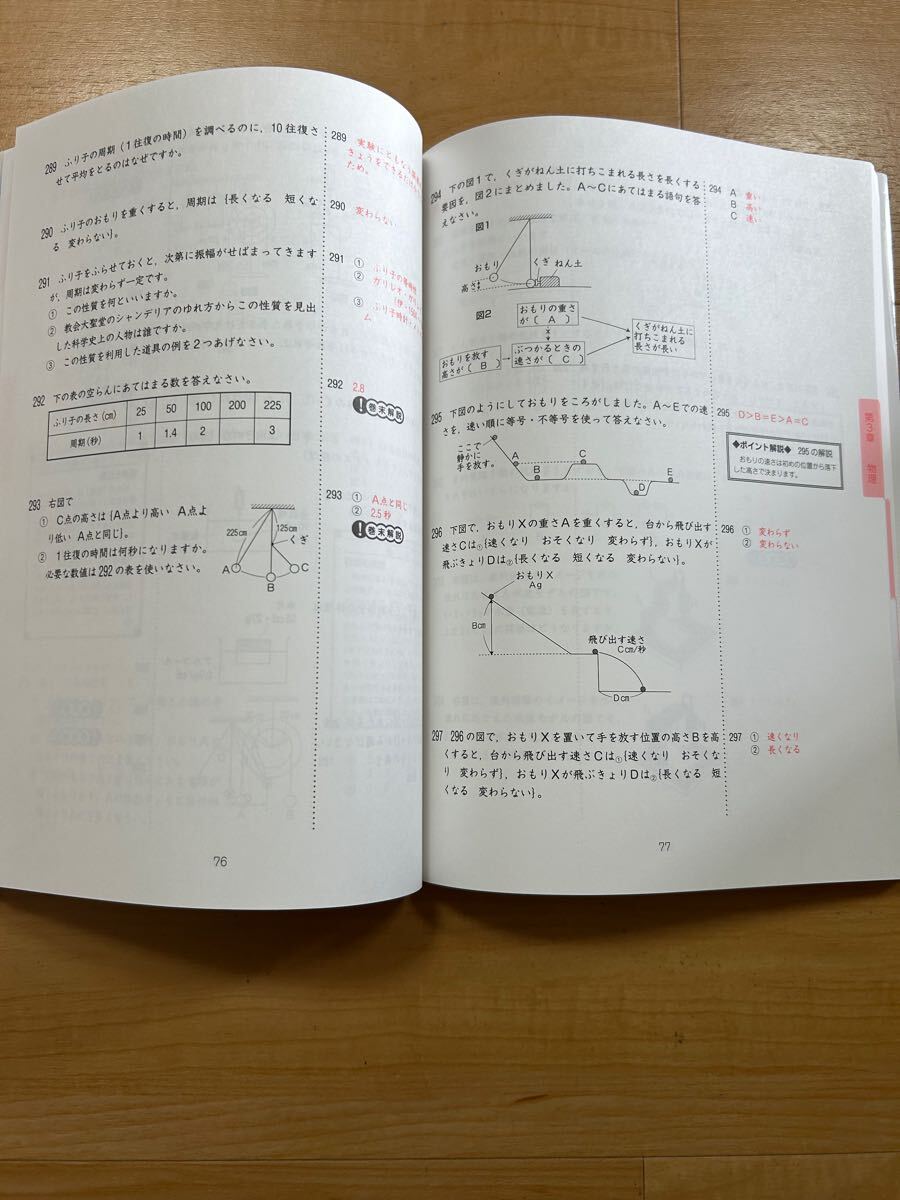 289 ふり子の周期(1往復の時間)を調べるのに,10往復さ
せて平均をとるのはなぜですか。
289
実験にともなう
きょうをできるだけ
ため。
290 ふり子のおもりを重くすると,周期は{長くなる 短くな
る 変わらない}。
290
変わらない
291 ふり子をふらせておくと,次第に振幅がせばまってきます
が,周期は変わらず一定です。
① この性質を何といいますか。
② 教会大聖堂のシャンデリアのゆれ方からこの性質を見出
した科学史上の人物は誰ですか。
③ この性質を利用した道具の例を2つあげなさい。
291 ①
ふり子の等時性
② ガリレオ・ガリ
③ ふり子時計,メ
ム
292 下の表の空らんにあてはまる数を答えなさい。
ふり子の長さ(cm) 25 50 100 200 225
周期(秒) 1 1.4 2 3
292 2.8
!巻末解説
293 右図で
① C点の高さは{A点より高い A点よ
り低い A点と同じ}。
② 1往復の時間は何秒になりますか。
必要な数値は292の表を使いなさい。
225cm
125cm
くぎ
A
B
C
293 ① A点と同じ
② 2.5秒
!巻末解説
76
294 下の図1で,くぎがねん土に打ちこまれる長さを長くする
要因を,図2にまとめました。A~Cにあてはまる語句を答
えなさい。
図1
おもり
くぎ ねん土
高さ
図2
おもりの重さ
が( A )
×
おもりを放す
高さが( B )
ぶつかるときの
速さが( C )
くぎがねん土に
打ちこまれる
長さが長い
294 A 重い
B 高い
C 速い
295 下図のようにしておもりをころがしました。A~Eでの速
さを,速い順に等号・不等号を使って答えなさい。
ここで
静かに
手を放す。
A
B
C
D
E
295 D>B=E>A=C
◆ポイント解説◆ 295の解説
おもりの速さは初めの位置から落下
した高さで決まります。
第3章 物理
296 下図で,おもりXの重さAを重くすると,台から飛び出す
速さCは①{速くなり おそくなり 変わらず},おもりXが
飛ぶきょりDは②{長くなる 短くなる 変わらない}。
おもりX
Ag
Bcm
飛び出す速さ
Ccm/秒
Dcm
296 ① 変わらず
② 変わらない
297 296の図で,おもりXを置いて手を放す位置の高さBを高
くすると,台から飛び出す速さCは①{速くなり おそくな
り 変わらず},おもりXが飛ぶきょりDは②{長くなる 短
くなる 変わらない}。
297 ① 速くなり
② 長くなる
77